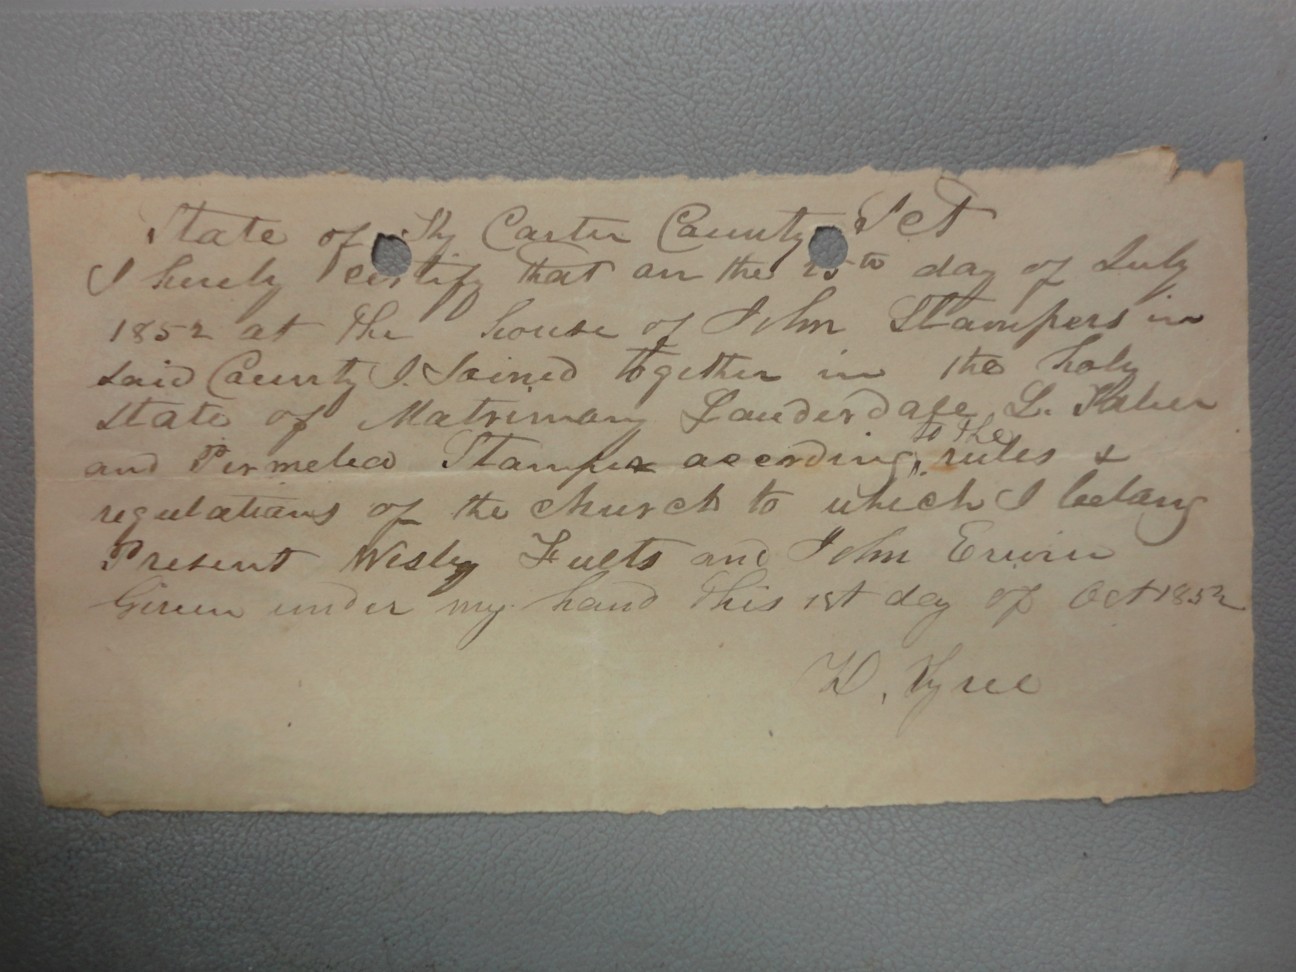 State of Ky Carter County Sct
I herely certify that on the 15th day of July
1852 at the house of John Stampers in
said County I. Joined together in the holy
state of Matrimony Lauderdale L.
and Permelia Stamper according to the rules &
regulations of the church to which I belong
Present Wesly Fults and John Erwin
Given under my hand this 1st day of Oct 1852